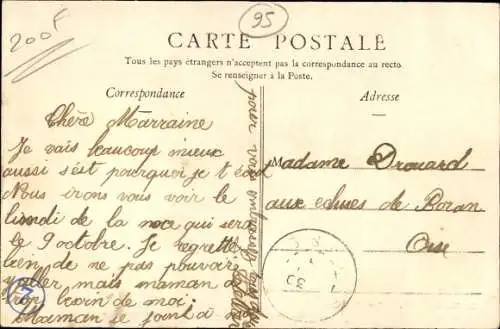 200F
95
CARTE POSTALE
Tous les pays étrangers n'acceptent pas la correspondance au recto
Se renseigner à la Poste.
Correspondance
Adresse
Chère Marraine
Je vais beaucoup mieux
aussi s'est pourquoi je t'écrit
Nous irons vous voir le
lundi de la noce qui sera
le 9 octobre. Je regrette
bien de ne pas pouvoir
aller mais maman a
trop besoin de moi.
Maman se joint à
pour vous embrasser
Madame Drouard
aux écluses de Boran
Oise